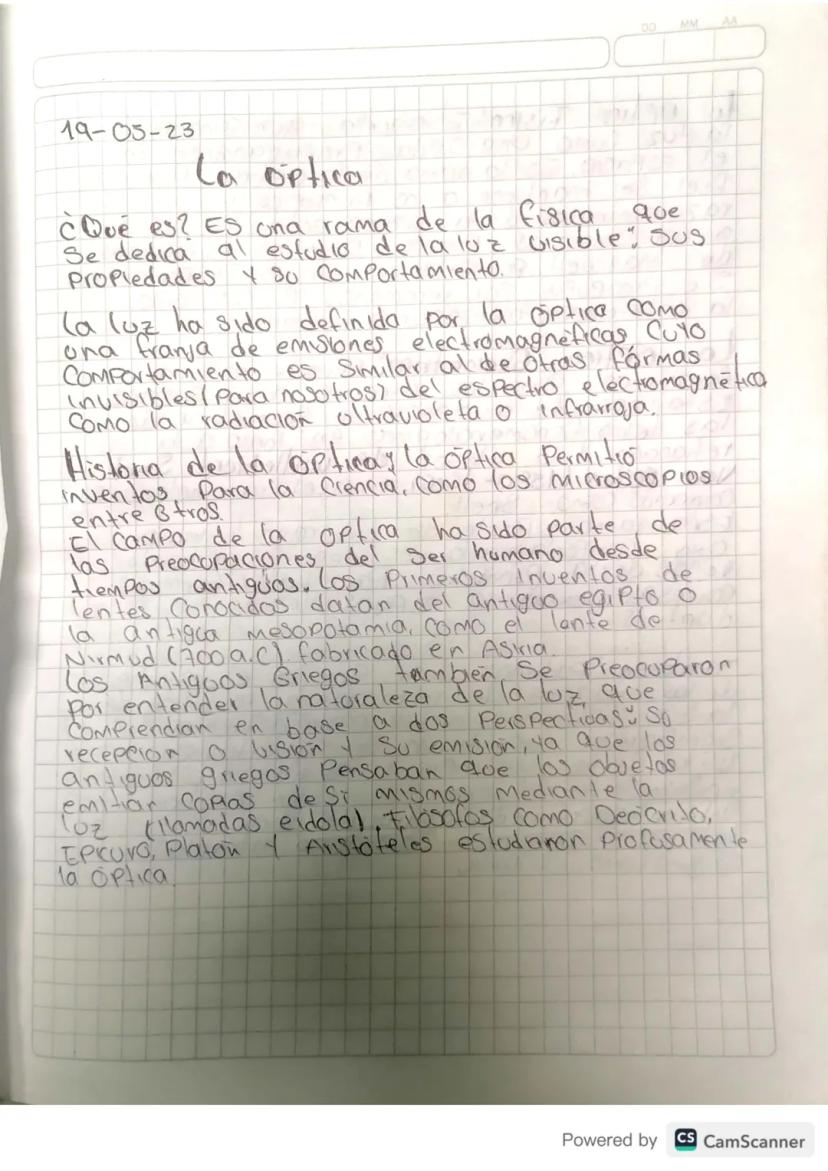 DD MM AA
19-05-23
La óptica
¿Qué es? Es una rama de la física que
se dedica al estudio de la luz visible: sus
propiedades y su comportamiento.
La luz ha sido definida por la óptica como
una franja de emisiones electromagnéticas, cuyo
comportamiento es similar al de otras formas
invisibles (para nosotros) del espectro electromagnético
como la radiación ultravioleta o infrarroja.
Historia de la óptica; la óptica Permitió
inventos, Para la Ciencia, como los microscopios
entre otros.
El campo de la optica ha sido parte de
las Preocupaciones del ser humano desde
tiempos antiguos. los Primeros inventos de
lentes conocidos datan del antiguo egipto o
la antigua mesopotamia, como el lente de
Nirmud (700 a.C) fabricado en Asiria.
Los Antiguos Griegos también se Preocuparon
por entender la naturaleza de la luz, que
Comprendian en base a dos Perspectivas: su
recepción o visión y su emisión, ya que los
antiguos griegos Pensaban que los objetos
emitian copias de sí mismos mediante la
luz (llamadas eidola). Filósofos como Deocrito,
Epicuro, Platón y Aristóteles estudiaron Profusamente
la óptica.
Powered by CS CamScanner